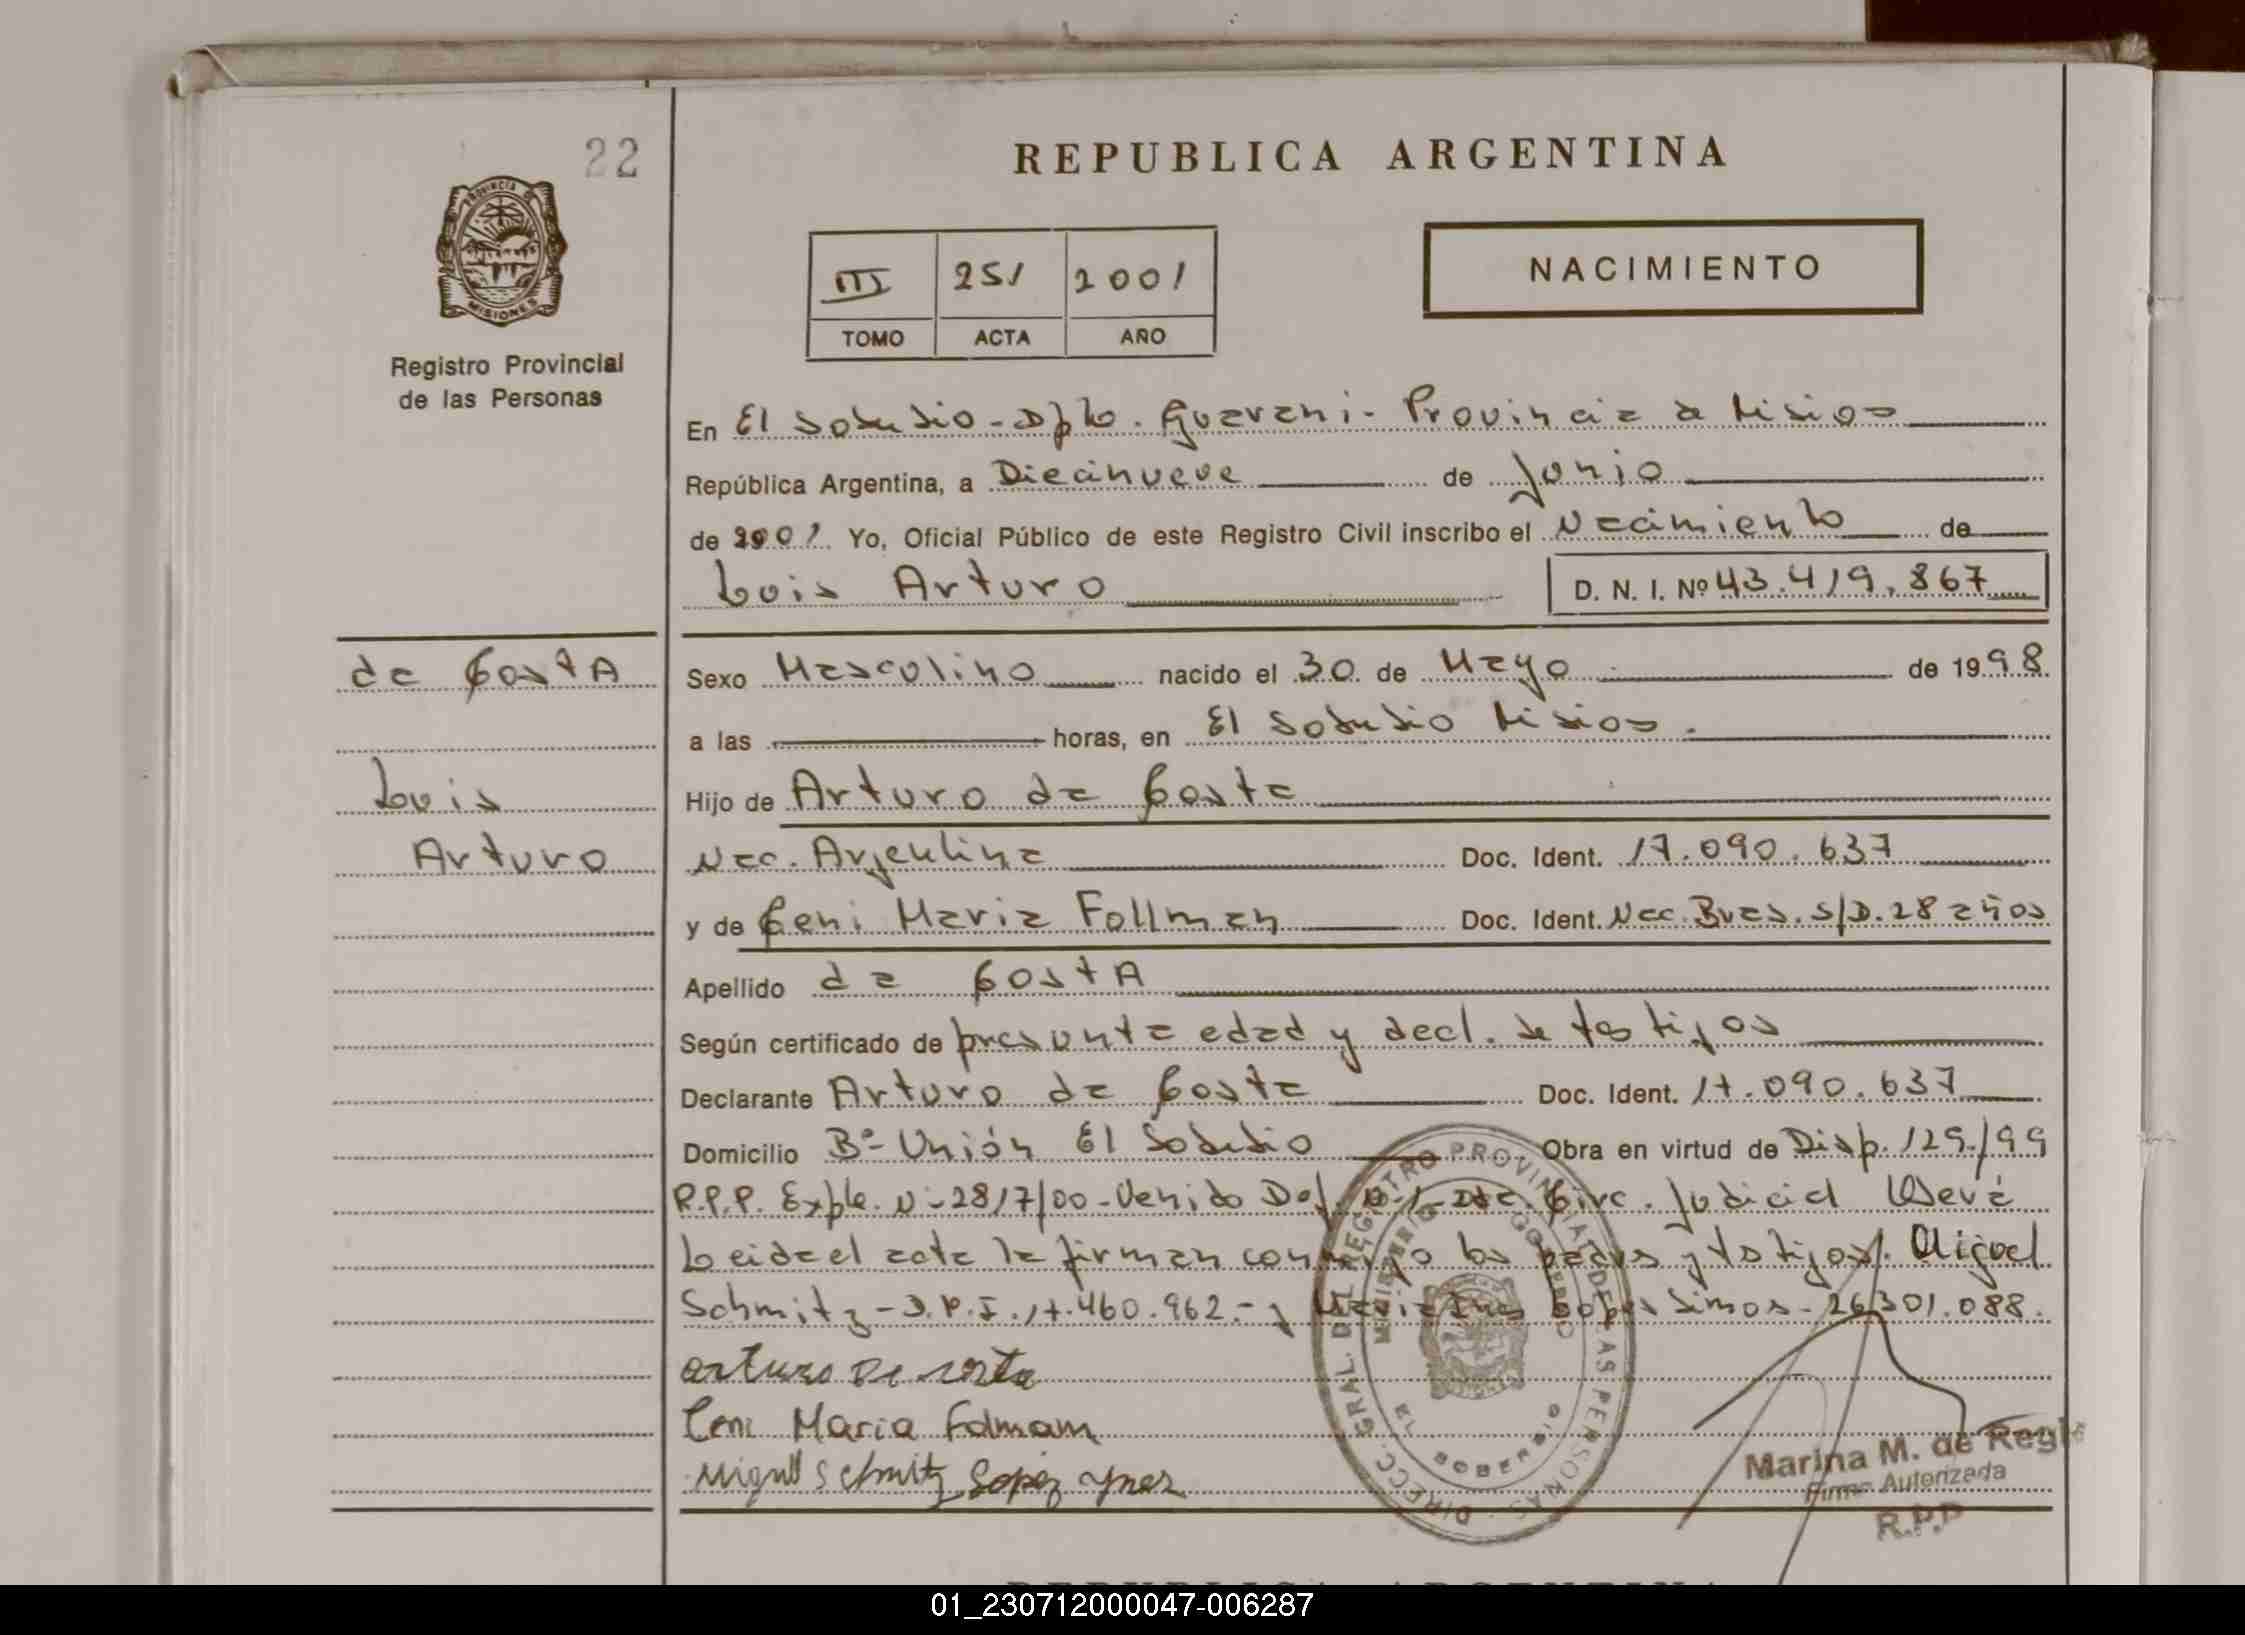 22
REPUBLICA ARGENTINA
PROVINCIA DE
MISIONES
III 251 2001
TOMO ACTA AÑO
NACIMIENTO
Registro Provincial
de las Personas
En El Soberbio - Dpto. Guarani - Provincia de Misiones
República Argentina, a Diecinueve de Junio
de 2001 Yo, Oficial Público de este Registro Civil inscribo el Nacimiento de
Luis Arturo D. N. I. Nº 43.419.867
da Costa
Sexo Masculino nacido el 30 de Mayo de 1998
a las horas, en El Soberbio Misiones.
Luis
Hijo de Arturo da Costa
Arturo
Nac. Argentina Doc. Ident. 17.090.637
y de Ceni Maria Follman Doc. Ident. Nac. Bras. S/D. 28 años
Apellido da Costa
Según certificado de presunta edad y decl. de testigos
Declarante Arturo da Costa Doc. Ident. 17.090.637
Domicilio Bº Unión El Soberbio Obra en virtud de Disp. 129/99
R.P.P. Expte. Nº 2817/00 - Venido Def. Circ. Judicial Oberá
Leida el acta la firman conmigo los padres y testigos. Miguel
Schmitz - D.N.I. 17.460.962 - y 26.301.088.
arturo De costa
Ceni Maria Folmam
Miguel Schmitz Lopez Ynes
DIRECC. GRAL. DEL REGISTRO PROVINCIAL DE LAS PERSONAS
MINISTERIO GOBIERNO
SOBERBIO
Marina M. de
Firma Autorizada
R.P.P
REPUBLICA ARGENTINA
01_230712000047-006287